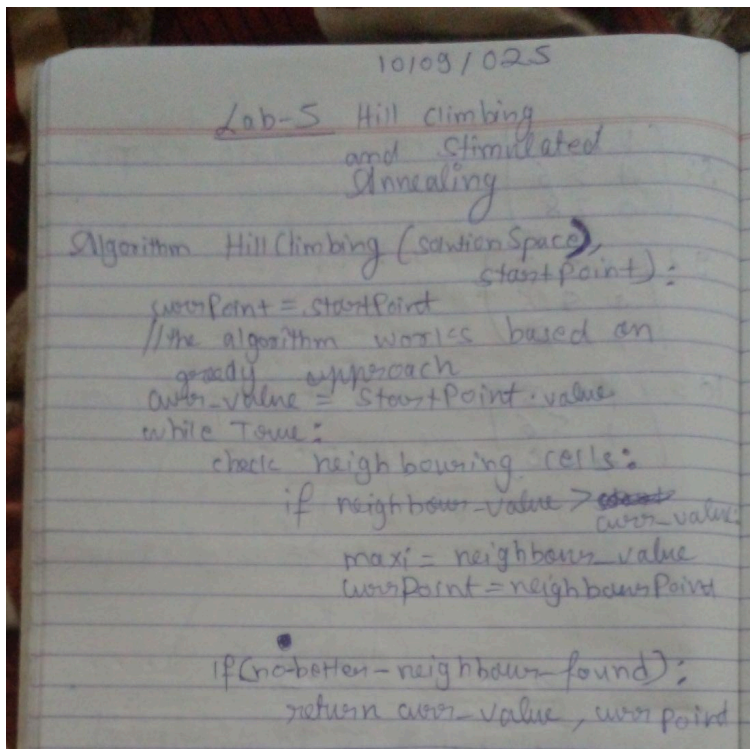 10/09/025
Lab-5 Hill climbing
and Stimulated
Annealing
Algorithm HillClimbing (solutionSpace),
startPoint):
currPoint = startPoint
//the algorithm works based on
greedy approach
curr_value = StartPoint.value
while True:
check neighbouring cells:
if neighbour_value > curr_value:
maxi = neighbour_value
currPoint = neighbourPoint
if(no-better-neighbour-found):
return curr_value, currpoint